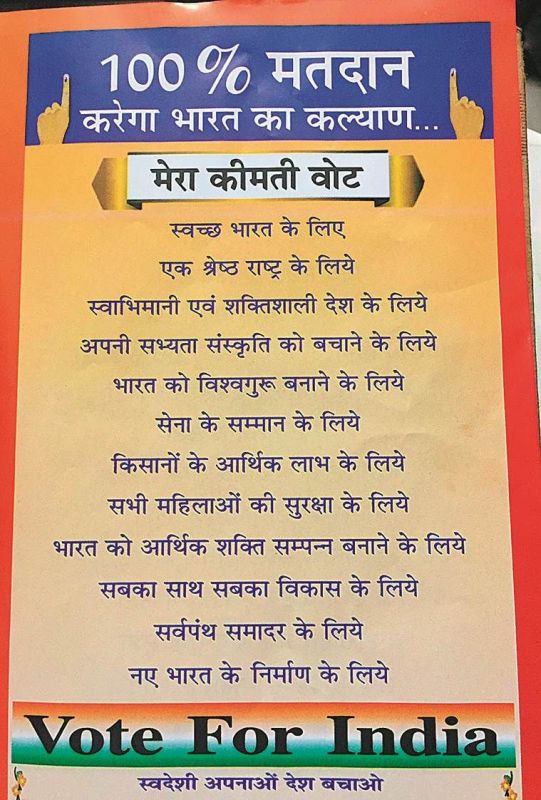 100 % मतदान
करेगा भारत का कल्याण...
मेरा कीमती वोट
स्वच्छ भारत के लिए
एक श्रेष्ठ राष्ट्र के लिये
स्वाभिमानी एवं शक्तिशाली देश के लिये
अपनी सभ्यता संस्कृति को बचाने के लिये
भारत को विश्वगुरू बनाने के लिये
सेना के सम्मान के लिये
किसानों के आर्थिक लाभ के लिये
सभी महिलाओं की सुरक्षा के लिये
भारत को आर्थिक शक्ति सम्पन्न बनाने के लिये
सबका साथ सबका विकास के लिये
सर्वपंथ समादर के लिये
नए भारत के निर्माण के लिये
Vote For India
स्वदेशी अपनाओं देश बचाओ